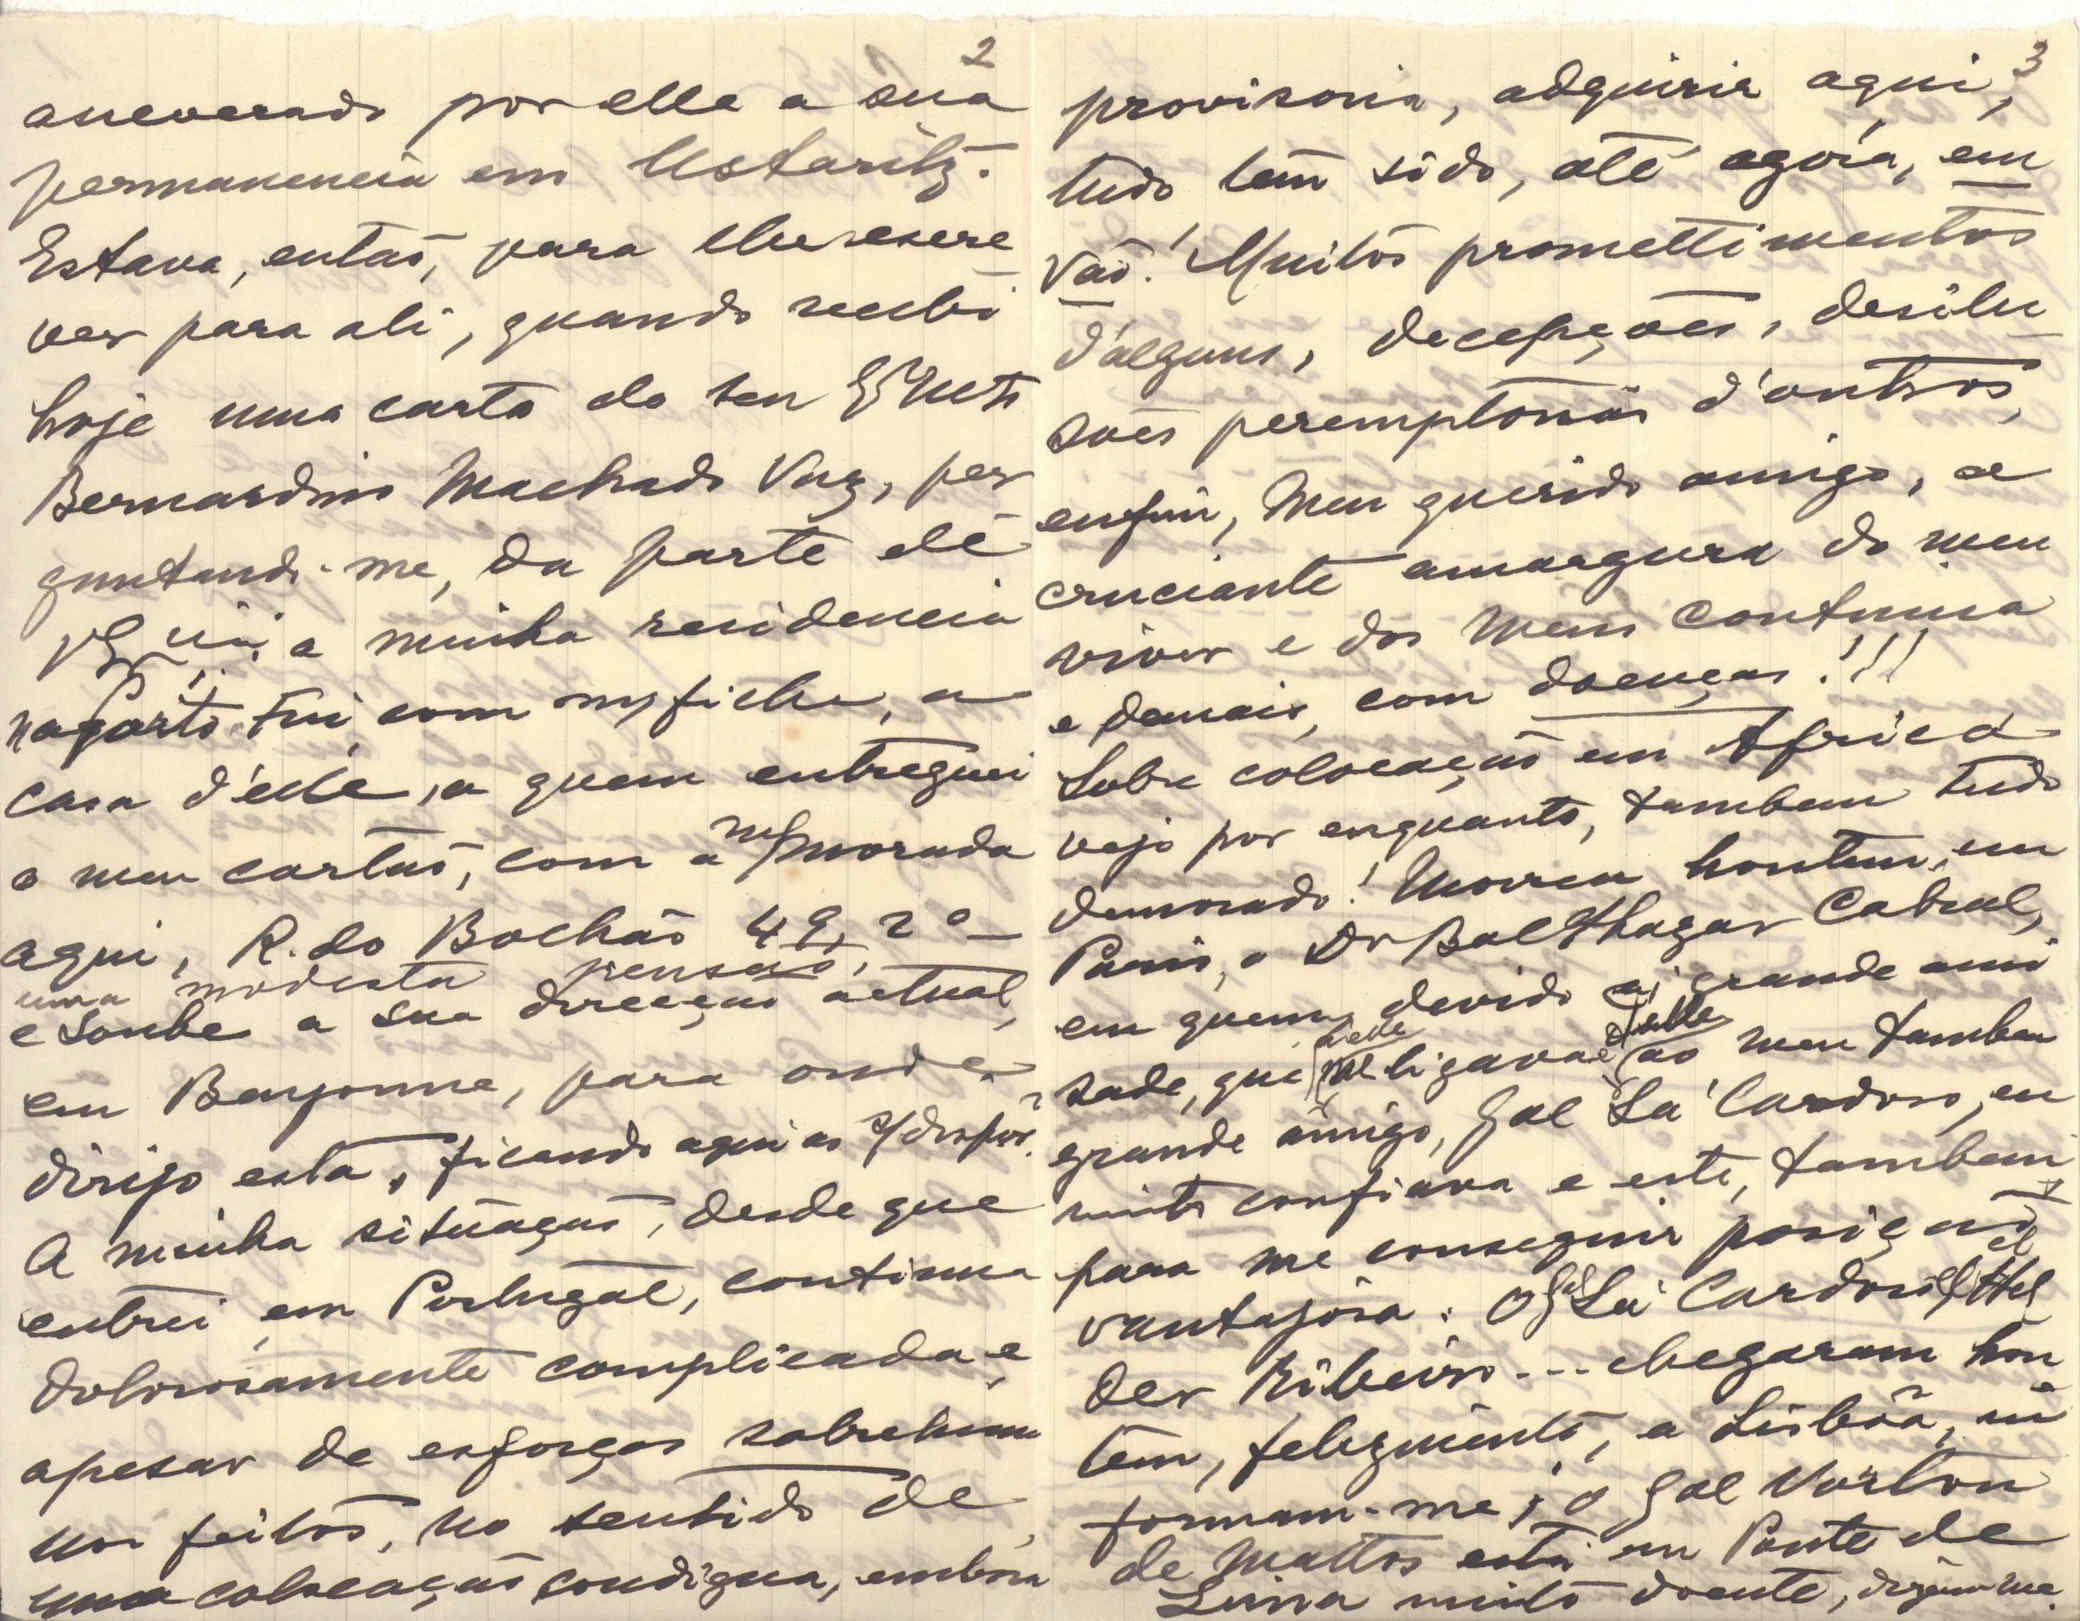 2
asseverado por elle a sua
permanencia em Ustaritz.
Estava, então, para lhe escre
ver para ali, quando recebi
hoje uma carta do seu Exmo Neto
Bernardino Machado Vaz, per
guntando-me, da parte de
V. Exia, a minha residencia
no Porto. Fui, com m/ filha, a
casa d'elle, a quem entreguei
o meu cartão, com a m/ morada
aqui, R. do Bolhão 49, 2º
uma modesta pensão,
e soube a sua direcção actual,
em Bayonne, para onde
dirijo esta, ficando aqui ao s/ dispôr.
A minha situação, desde que
entrei em Portugal, continua
dolorosamente complicada e
apesar de esforços sobrehuma
nos feitos, no sentido de
uma colocação condigna, embora
3
provisoria, adquirir aqui,
tudo tem sido, até agora, em
vão! Muitos promettimentos
d'alguns, decepções, desilu
sões peremptorias d'outros,
enfim, meu querido amigo, a
cruciante amargura do meu
viver e dos meus continua
e demais, com doenças!!!
Sobre colocação em Africa
vejo por enquanto, tambem tudo
demorado! Morreu hontem, em
Paris, o Dr Balthazar Cabral,
em quem, devido á grande ami
sade, que ligava ao meu tambem
grande amigo, Gal Sá Cardoso, eu
muito confiava e este, tambem
para me conseguir posição
vantajosa. O Gal Sá Cardoso, Hel
der Ribeiro... chegaram hon
tem, felizmente, a Lisbôa, in
formam-me; o Gal Norton
de Mattos está em Ponte de
Lima muito doente, dizem-me.